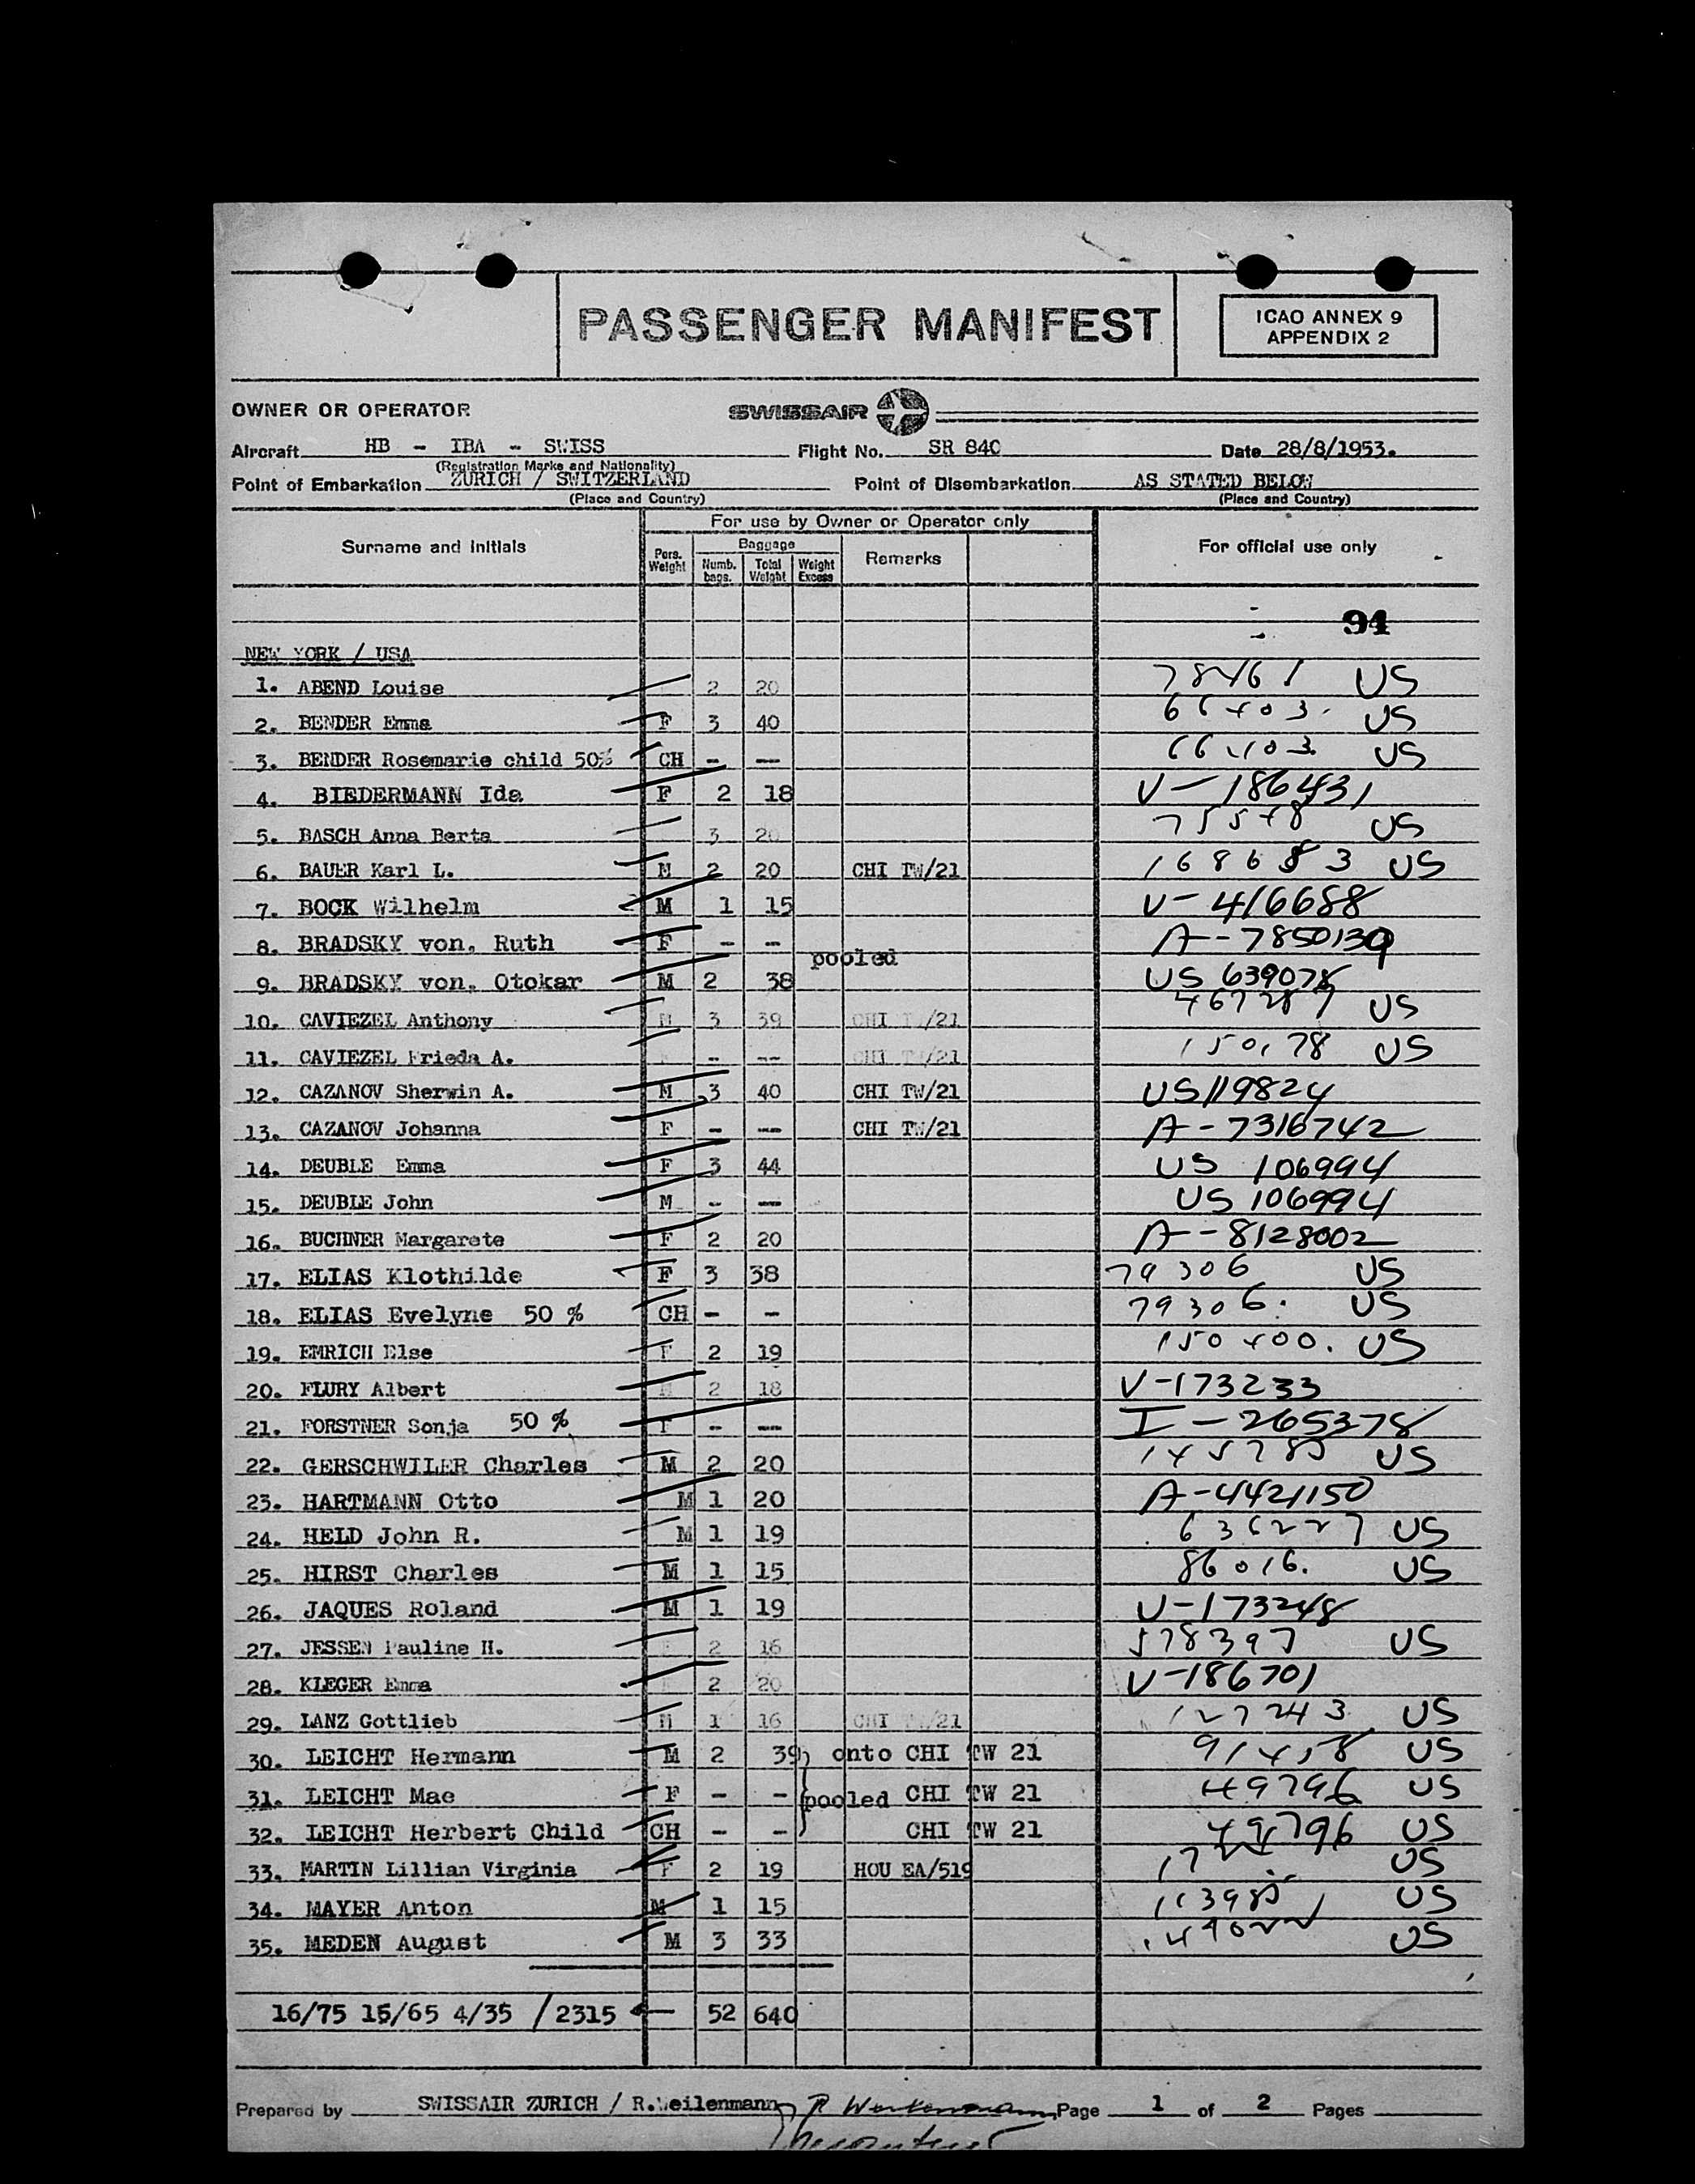 PASSENGER MANIFEST
ICAO ANNEX 9
APPENDIX 2
OWNER OR OPERATOR SWISSAIR
Aircraft HB - IBA - SWISS Flight No. SR 840 Date 28/8/1953.
(Registration Marks and Nationality)
Point of Embarkation ZURICH / SWITZERLAND Point of Disembarkation AS STATED BELOW
(Place and Country) (Place and Country)
For use by Owner or Operator only
Surname and Initials Pers. Weight Baggage Numb. bags. Total Weight Weight Excess Remarks For official use only
94
NEW YORK / USA
1. ABEND Louise 2 20 78461 US
2. BENDER Emma F 3 40 66403. US
3. BENDER Rosemarie child 50% CH - -- 66403 US
4. BIEDERMANN Ida F 2 18 V-186431
5. BASCH Anna Berta 3 20 75548 US
6. BAUER Karl L. M 2 20 CHI TW/21 168683 US
7. BOCK Wilhelm M 1 15 V-416688
8. BRADSKY von, Ruth F - -- A-7850139
pooled
9. BRADSKY von, Otokar M 2 38 US 639078
10. CAVIEZEL Anthony M 3 39 CHI TW/21 US
11. CAVIEZEL Frieda A. - -- CHI TW/21 150178 US
12. CAZANOV Sherwin A. M 3 40 CHI TW/21 US119824
13. CAZANOV Johanna F - -- CHI TW/21 A-7316742
14. DEUBLE Emma F 3 44 US 106994
15. DEUBLE John M - -- US 106994
16. BUCHNER Margarete F 2 20 A-8128002
17. ELIAS Klothilde F 3 38 79306 US
18. ELIAS Evelyne 50 % CH - - 79306. US
19. EMRICH Else F 2 19 150400. US
20. FLURY Albert M 2 18 V-173233
21. FORSTNER Sonja 50 % F - -- I-265378
22. GERSCHWILER Charles M 2 20 US
23. HARTMANN Otto M 1 20 A-4421150
24. HELD John R. M 1 19 636227 US
25. HIRST Charles M 1 15 86016. US
26. JAQUES Roland M 1 19 V-173248
27. JESSEN Pauline H. 2 16 578397 US
28. KLEGER Emma 2 20 V-186701
29. LANZ Gottlieb M 1 16 CHI TW/21 127243 US
30. LEICHT Hermann M 2 39 onto CHI TW 21 91458 US
31. LEICHT Mae F - - pooled CHI TW 21 49796 US
32. LEICHT Herbert Child CH - - CHI TW 21 49796 US
33. MARTIN Lillian Virginia F 2 19 HOU EA/519 US
34. MAYER Anton M 1 15 US
35. MEDEN August M 3 33 US
16/75 15/65 4/35 / 2315 52 640
Prepared by SWISSAIR ZURICH / R.Weilenmann Page 1 of 2 Pages